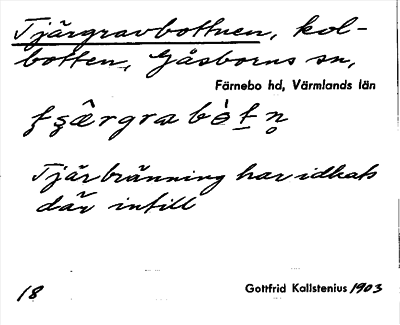 Tjärgravbottnen, kol-
botten, Gåsborns sn,
Färnebo hd, Värmlands län
Tjärbränning har idkats
där intill
18 Gottfrid Kallstenius 1903